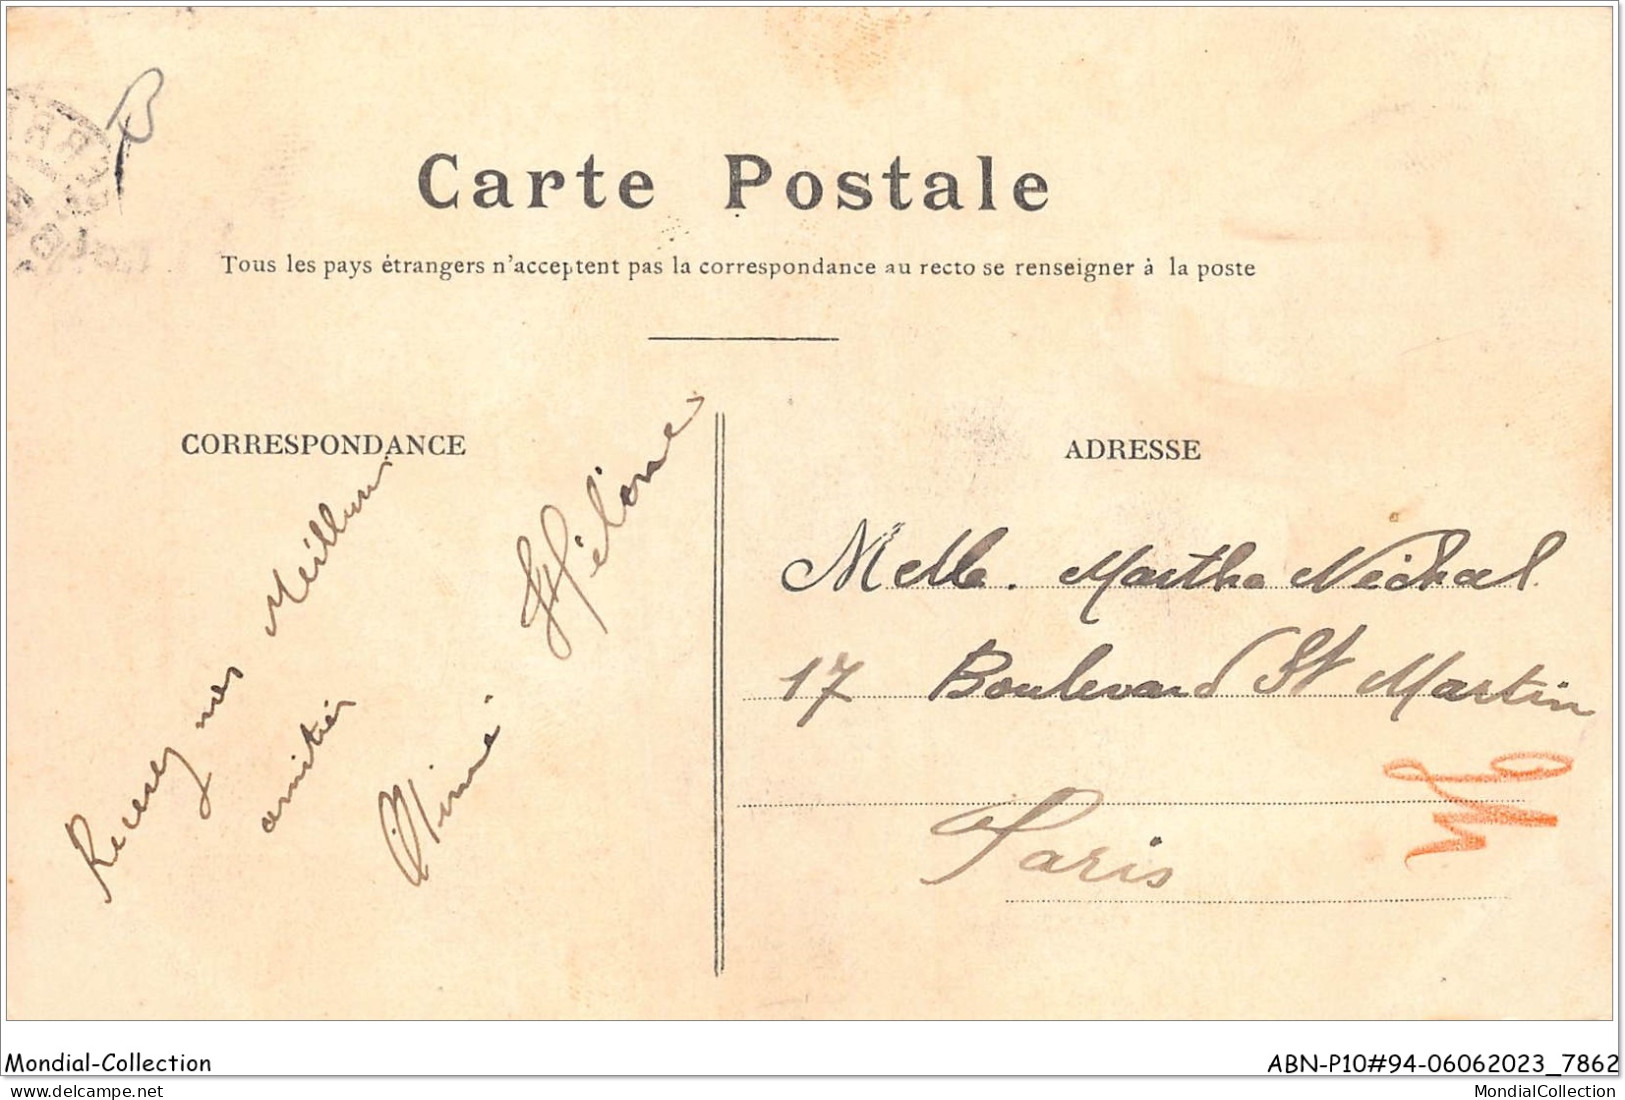 Carte Postale
Tous les pays étrangers n'acceptent pas la correspondance au recto se renseigner à la poste
CORRESPONDANCE
Recevez nos Meilleurs
amitiés
Mimi
Hélène
ADRESSE
Melle. Marthe
17 Boulevard St Martin
Paris
Mondial-Collection
ABN-P10#94-06062023_7862
delcampe.net
MondialCollection